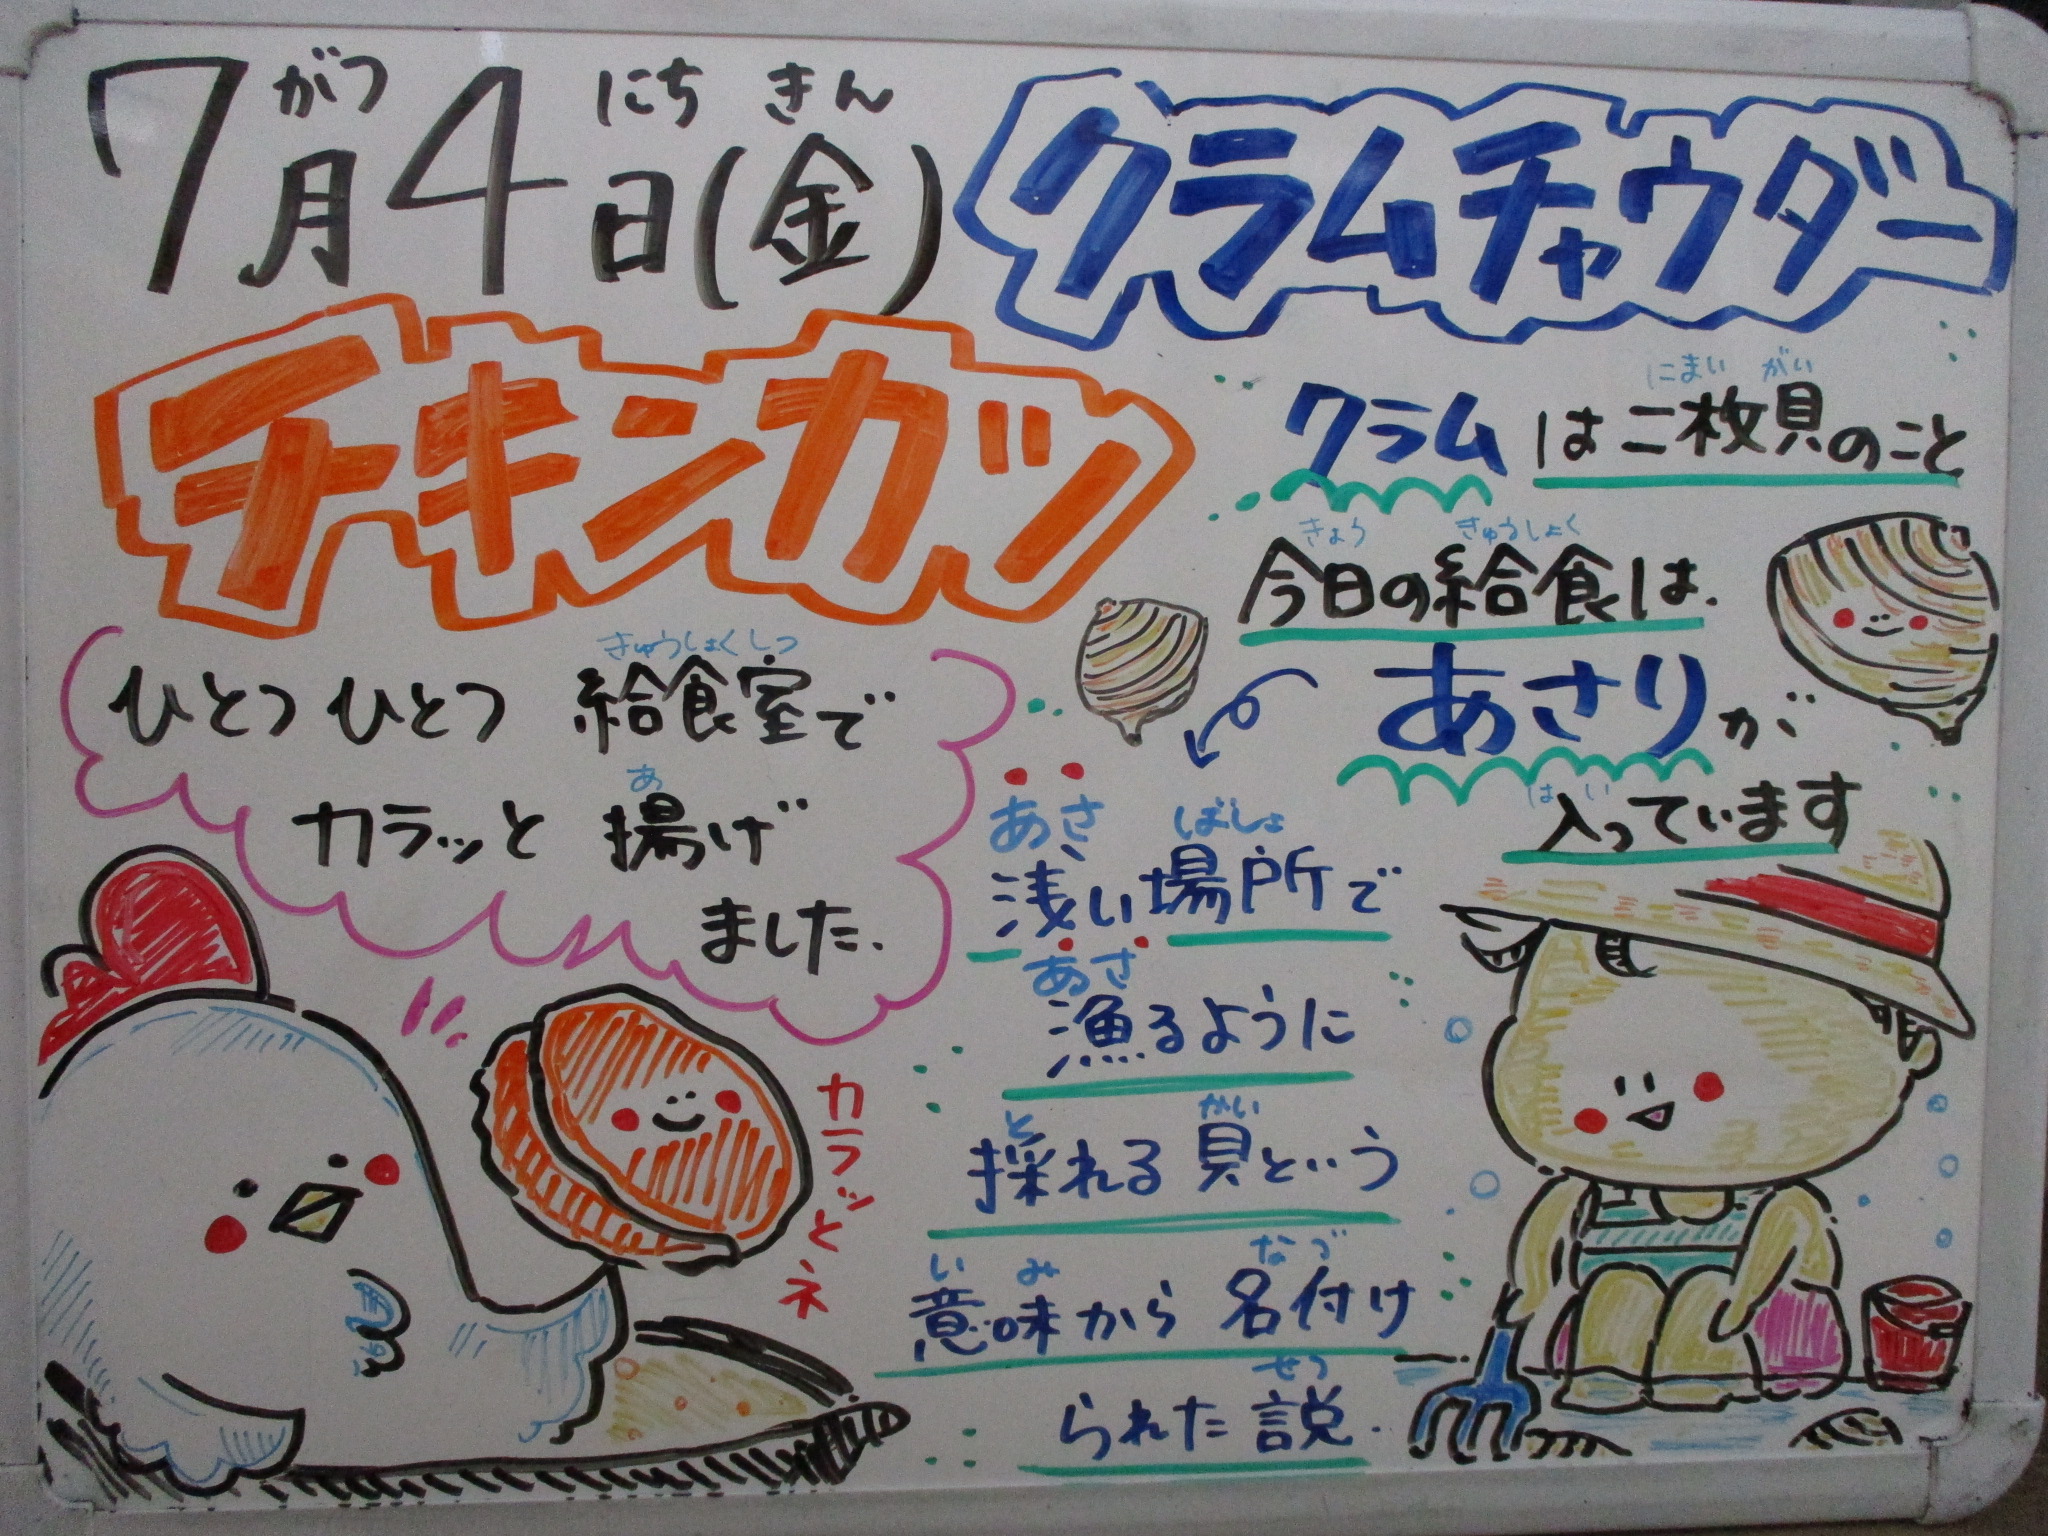 7月4日(金)
がつ にち きん
クラムチャウダー
チキンカツ
きゅうしょくしつ
ひとつひとつ 給食室で
あ
カラッと 揚げ
ました.
カラッとネ
にまい がい
クラム は二枚貝のこと
きょう きゅうしょく
今日の給食は、
あさりが
はい
入っています
あさ ばしょ
浅い場所で
あさ
漁るように
と かい
採れる貝という
い み な づ
意味から名付け
せつ
られた説.